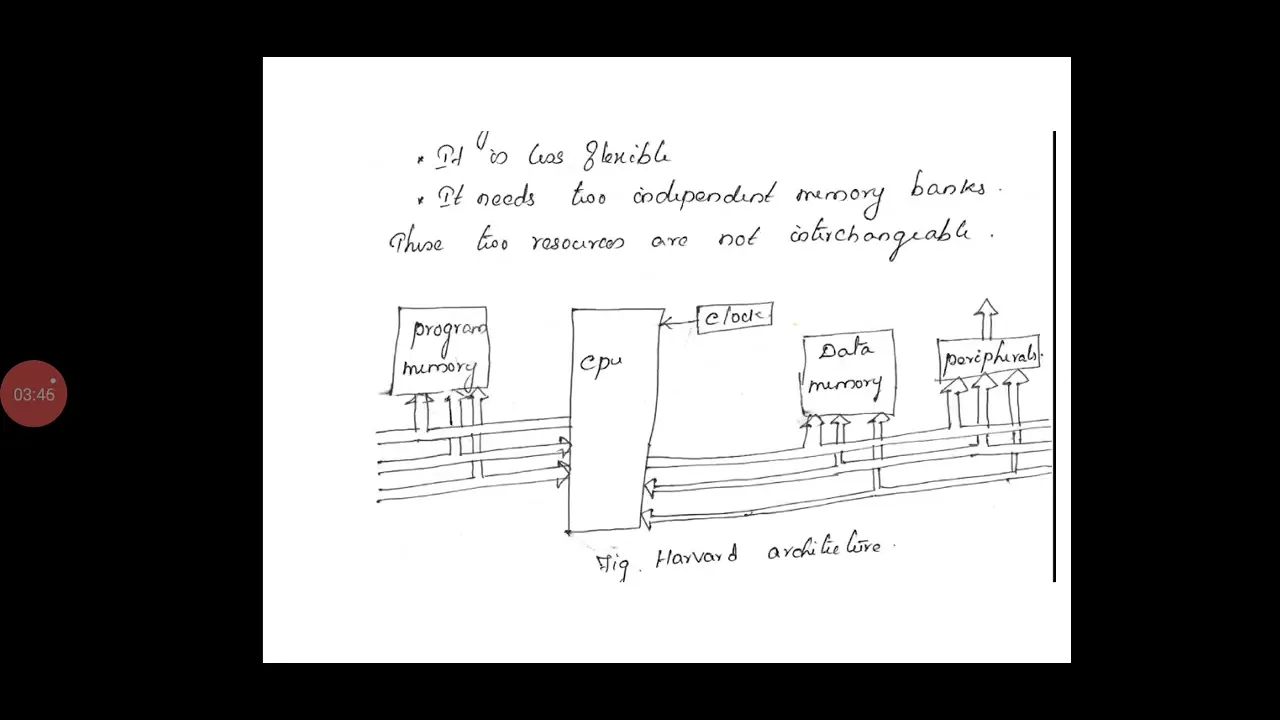 • It is less flexible
• It needs two independent memory banks.
These two resources are not interchangeable.
program
memory
cpu
clock
Data
memory
peripherals.
03:46
Fig. Harvard architecture.